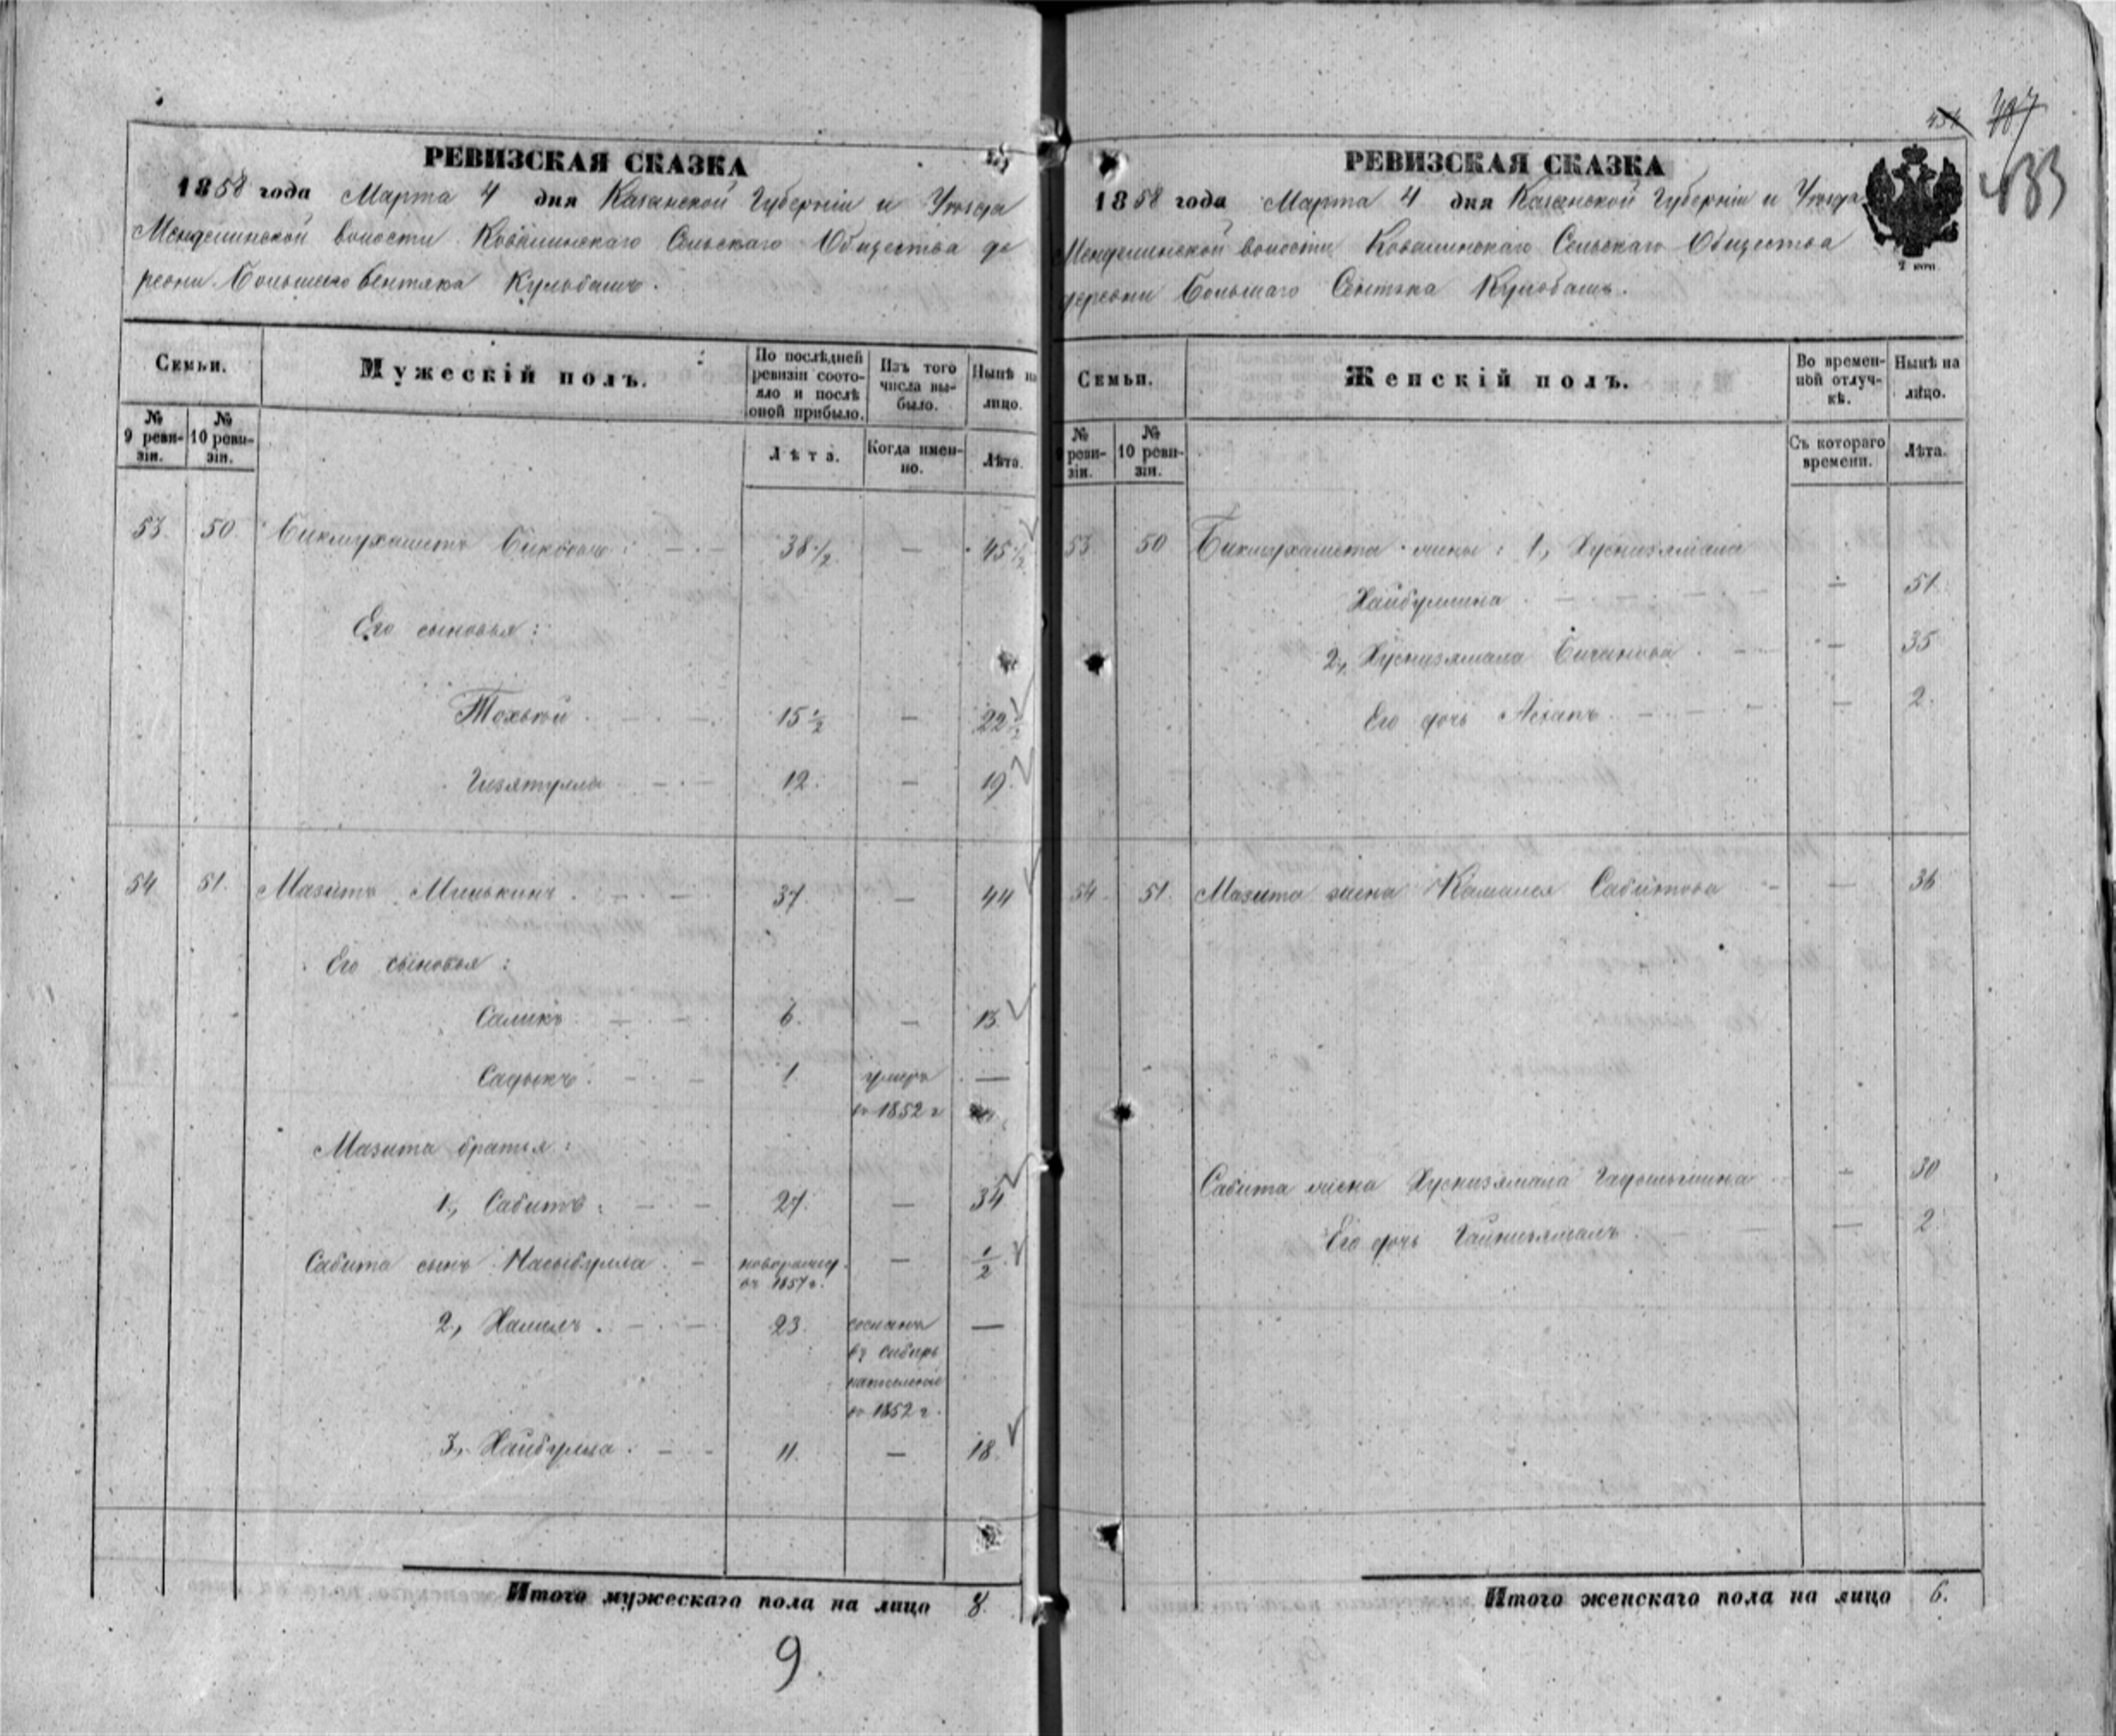 РЕВИЗСКАЯ СКАЗКА
1858 года Марта 4 дня Казанской Губерніи и Уѣзда
волости Ковалинскаго Сельскаго Общества де
ревни Большаго Сентяка Кульбашъ.
Семьи.
Мужескій полъ.
По послѣдней ревизіи состояло и послѣ оной прибыло.
Изъ того числа выбыло.
Нынѣ на лицо.
№ 9 ревизіи.
№ 10 ревизіи.
Лѣта.
Когда именно.
Лѣта.
53. 50. Бикмухаметъ : — 38 1/2 — 45 1/2
Его сыновья:
15 1/2 — 22 1/2
Гизятулла — 12. — 19.
54 51. Мазитъ Минькинъ. — 37 — 44
Его сыновья:
Саликъ — 6. — 13
Садыкъ. — 1. умеръ —
въ 1852 г
Мазита братья:
1, Сабитъ: — 27. — 34
Сабита сынъ Насыбулла — новорожд. — 1/2
въ 1857 г.
2, Халилъ. — 23. сосланъ —
въ сибирь
въ 1852 г.
3, Хайбулла. — 11. — 18.
Итого мужескаго пола на лицо 8.
9.
487
433
РЕВИЗСКАЯ СКАЗКА
1858 года Марта 4 дня Казанской Губерніи и Уѣзда
волости Ковалинскаго Сельскаго Общества
деревни Большаго Сентяка Кульбашъ.
Семьи.
Женскій полъ.
Во временной отлучкѣ.
Нынѣ на лицо.
№ 9 ревизіи.
№ 10 ревизіи.
Съ котораго времени.
Лѣта.
53 50 Бикмухамета жены: 1, Хуснизямала
Хайбуллина — 51.
2, Хуснизямала — 35
Его дочь — 2.
54. 51. Мазита жена Камалея Сабитова — 36
Сабита жена Хуснизямала — 30
Его дочь — 2.
Итого женскаго пола на лицо 6.